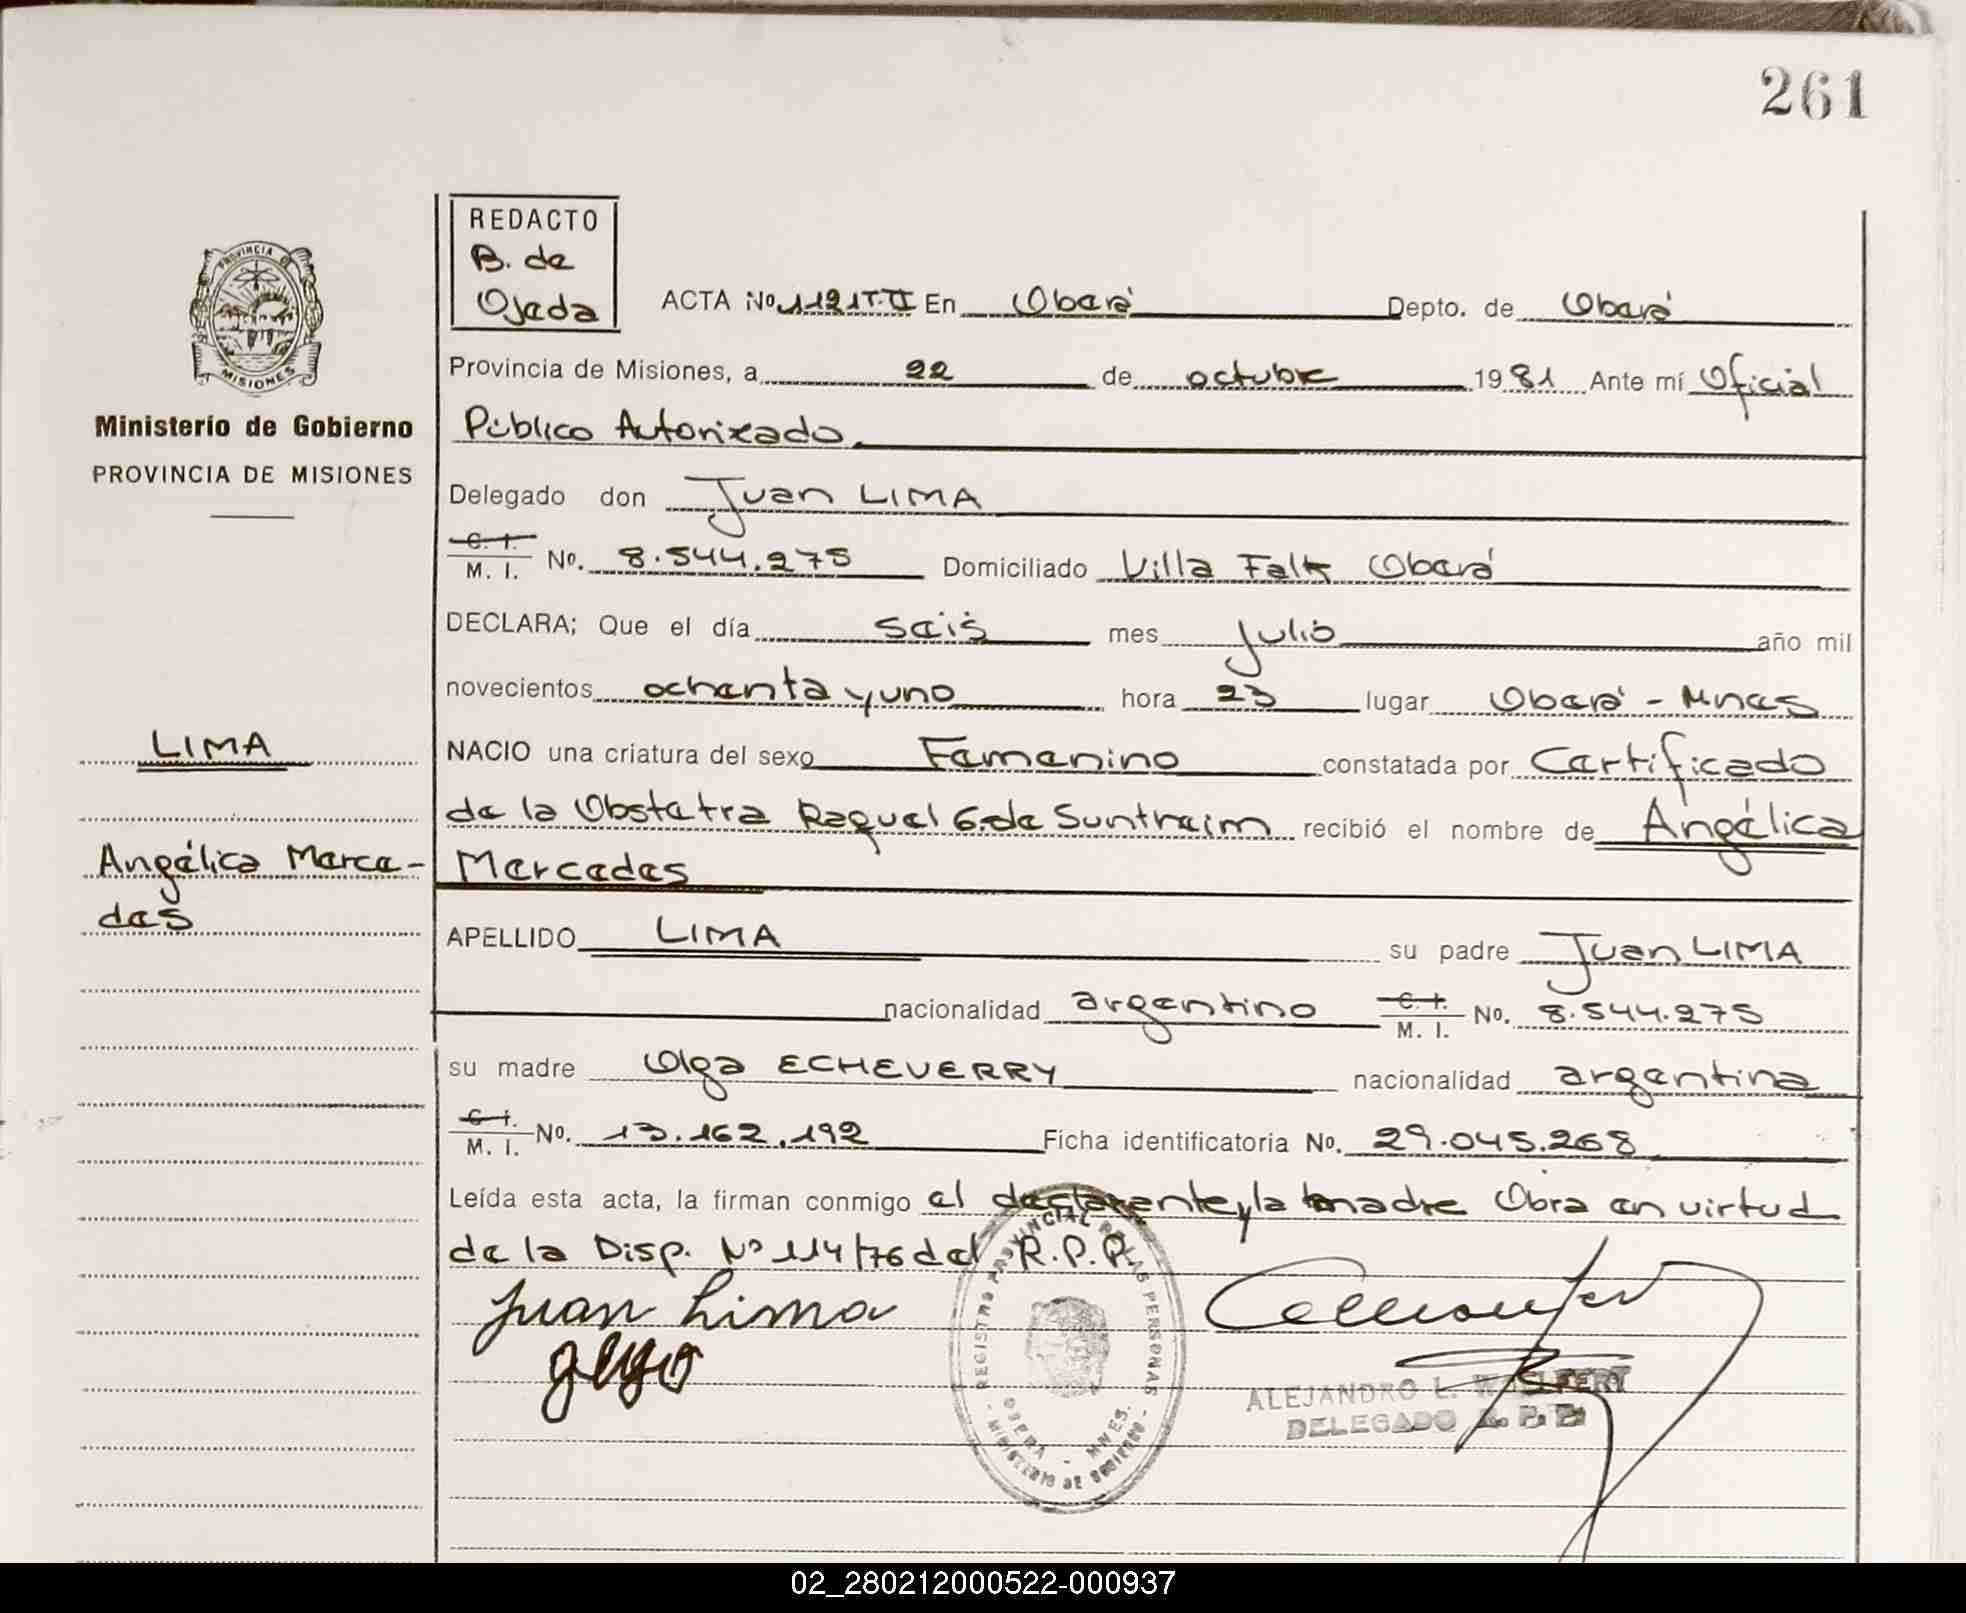 261
REDACTO
B. de
Ojeda
ACTA No. 1121 T. II En Oberá Depto. de Oberá
PROVINCIA DE
MISIONES
Provincia de Misiones, a 22 de octubre 1981 Ante mí Oficial
Ministerio de Gobierno
Público Autorizado
PROVINCIA DE MISIONES
Delegado don Juan LIMA
C. I.
M. I. No. 8.544.275 Domiciliado Villa Falk Oberá
DECLARA; Que el día seis mes julio año mil
novecientos ochenta y uno hora 23 lugar Oberá - Mnes
LIMA
NACIO una criatura del sexo Femenino constatada por Certificado
de la Obstetra Raquel G. de Suntraim recibió el nombre de Angélica
Angélica Merce-
Mercedes
des
APELLIDO LIMA su padre Juan LIMA
nacionalidad argentino C. I. M. I. No. 8.544.275
su madre Olga ECHEVERRY nacionalidad argentina
C. I.
M. I. No. 13.162.192 Ficha identificatoria No. 29.045.268
Leída esta acta, la firman conmigo el declarante y la madre Obra en virtud
de la Disp. Nº 114/76 del R.P.P.
Juan Lima
REGISTRO PROVINCIAL DE LAS PERSONAS
OBERA - MNES.
MINISTERIO DE GOBIERNO
ALEJANDRO L.
DELEGADO R. P. P.
02_280212000522-000937